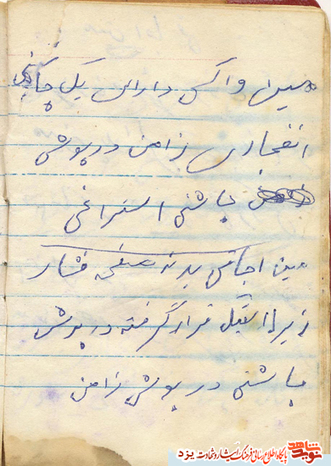 مین واکسی دارای یک چاشنی
انفجاری ضامن درپوش
چاشنی استفراغی
مین اجاقی بدنه صفحه فشار
زیر قرار گرفته درپوش
چاشنی درپوش ضامن
نوید شاهد
پایگاه اطلاع رسانی فرهنگ ایثار و شهادت یزد